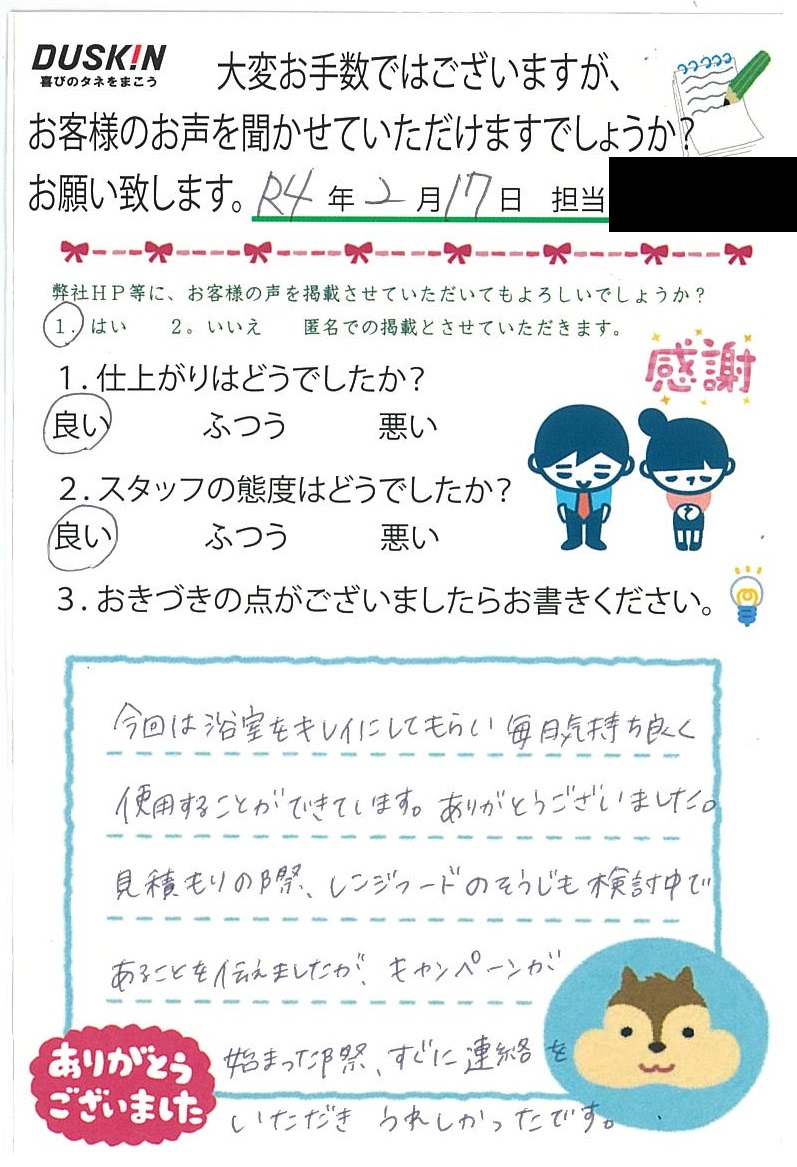 DUSKIN
喜びのタネをまこう
大変お手数ではございますが、
お客様のお声を聞かせていただけますでしょうか?
お願い致します。R4年2月17日 担当
弊社HP等に、お客様の声を掲載させていただいてもよろしいでしょうか?
1.はい 2。いいえ 匿名での掲載とさせていただきます。
感謝
1.仕上がりはどうでしたか?
良い ふつう 悪い
2.スタッフの態度はどうでしたか?
良い ふつう 悪い
3.おきづきの点がございましたらお書きください。
今回は浴室をキレイにしてもらい毎日気持ち良く
使用することができています。ありがとうございました。
見積もりの際、レンジフードのそうじも検討中で
あることを伝えましたが、キャンペーンが
始まった際、すぐに連絡を
いただきうれしかったです。
ありがとう
ございました